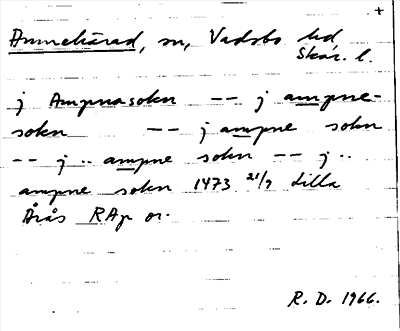 +
Amnehärad, sn, Vadsbo hd
Skar. l.
j Ampnasokn -- j ampne-
sokn -- j ampne sokn
-- j .. ampne sokn -- j ..
ampne sokn 1473 21/7 Lilla
Årås RAp or.
R. D. 1966.